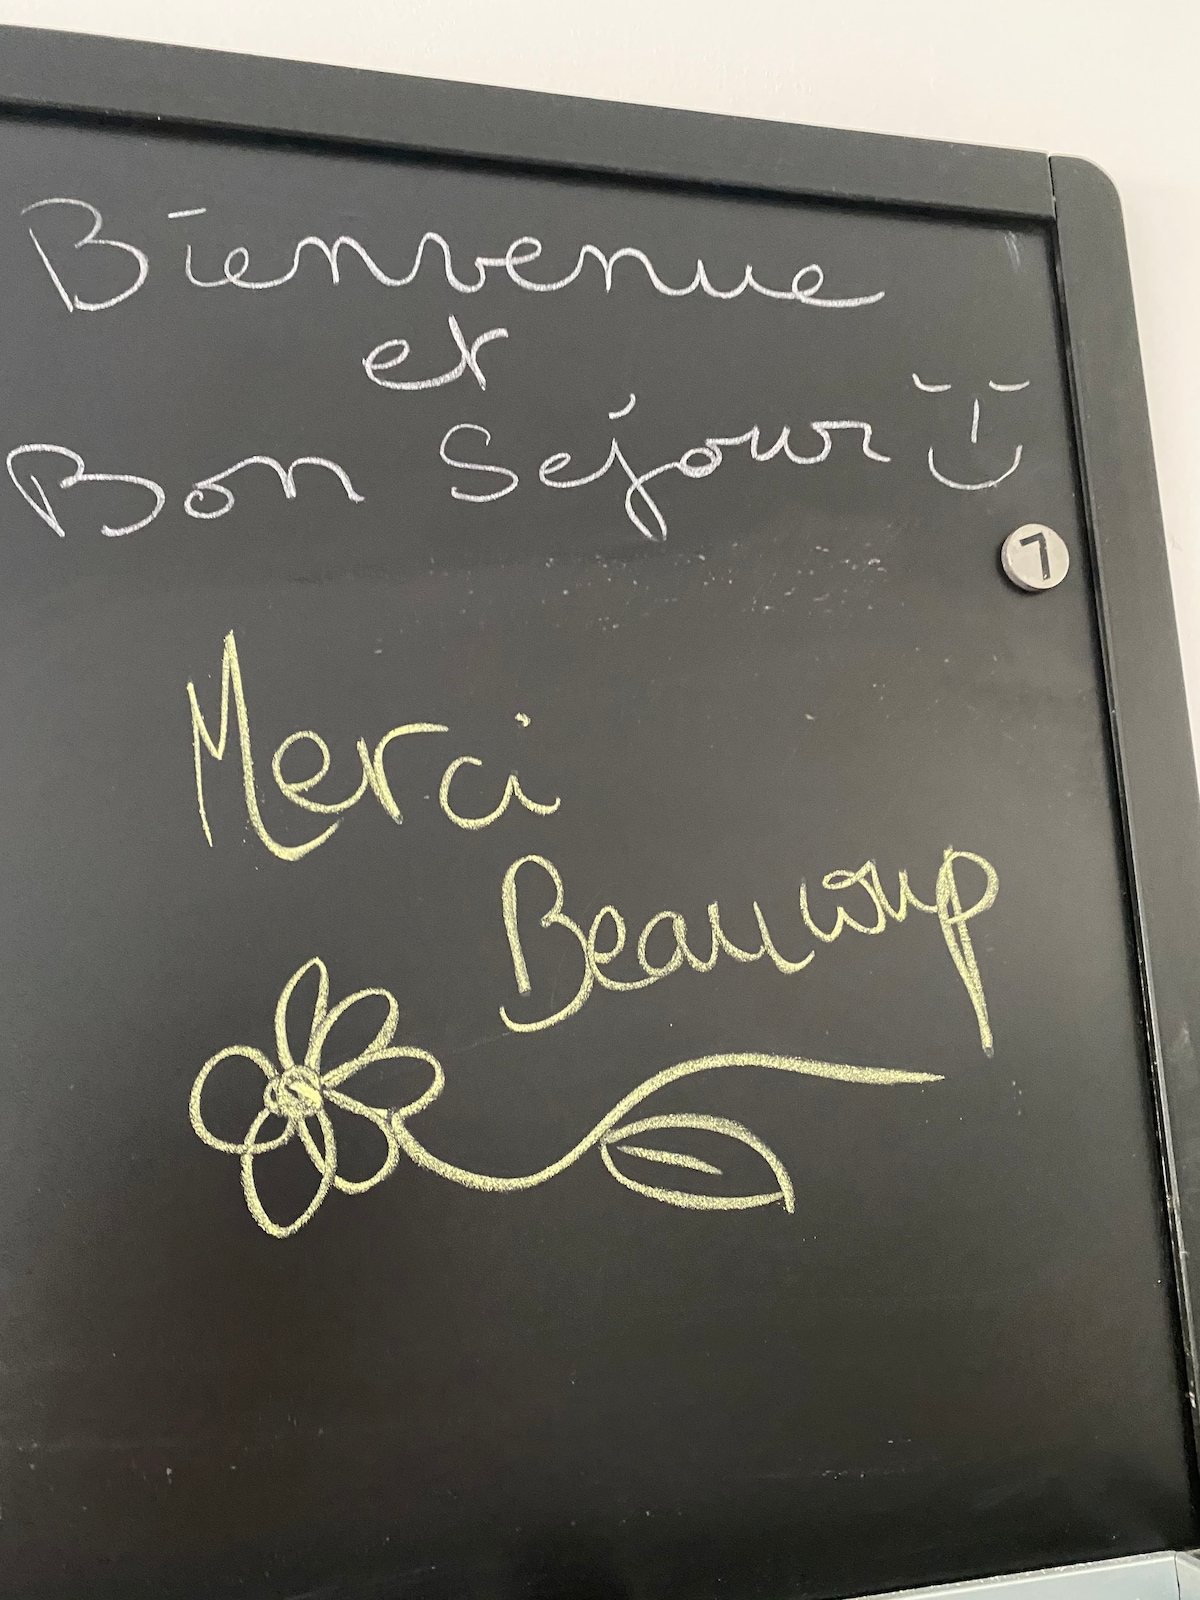 Bienvenue
et
Bon Séjour
7
Merci
Beaucoup